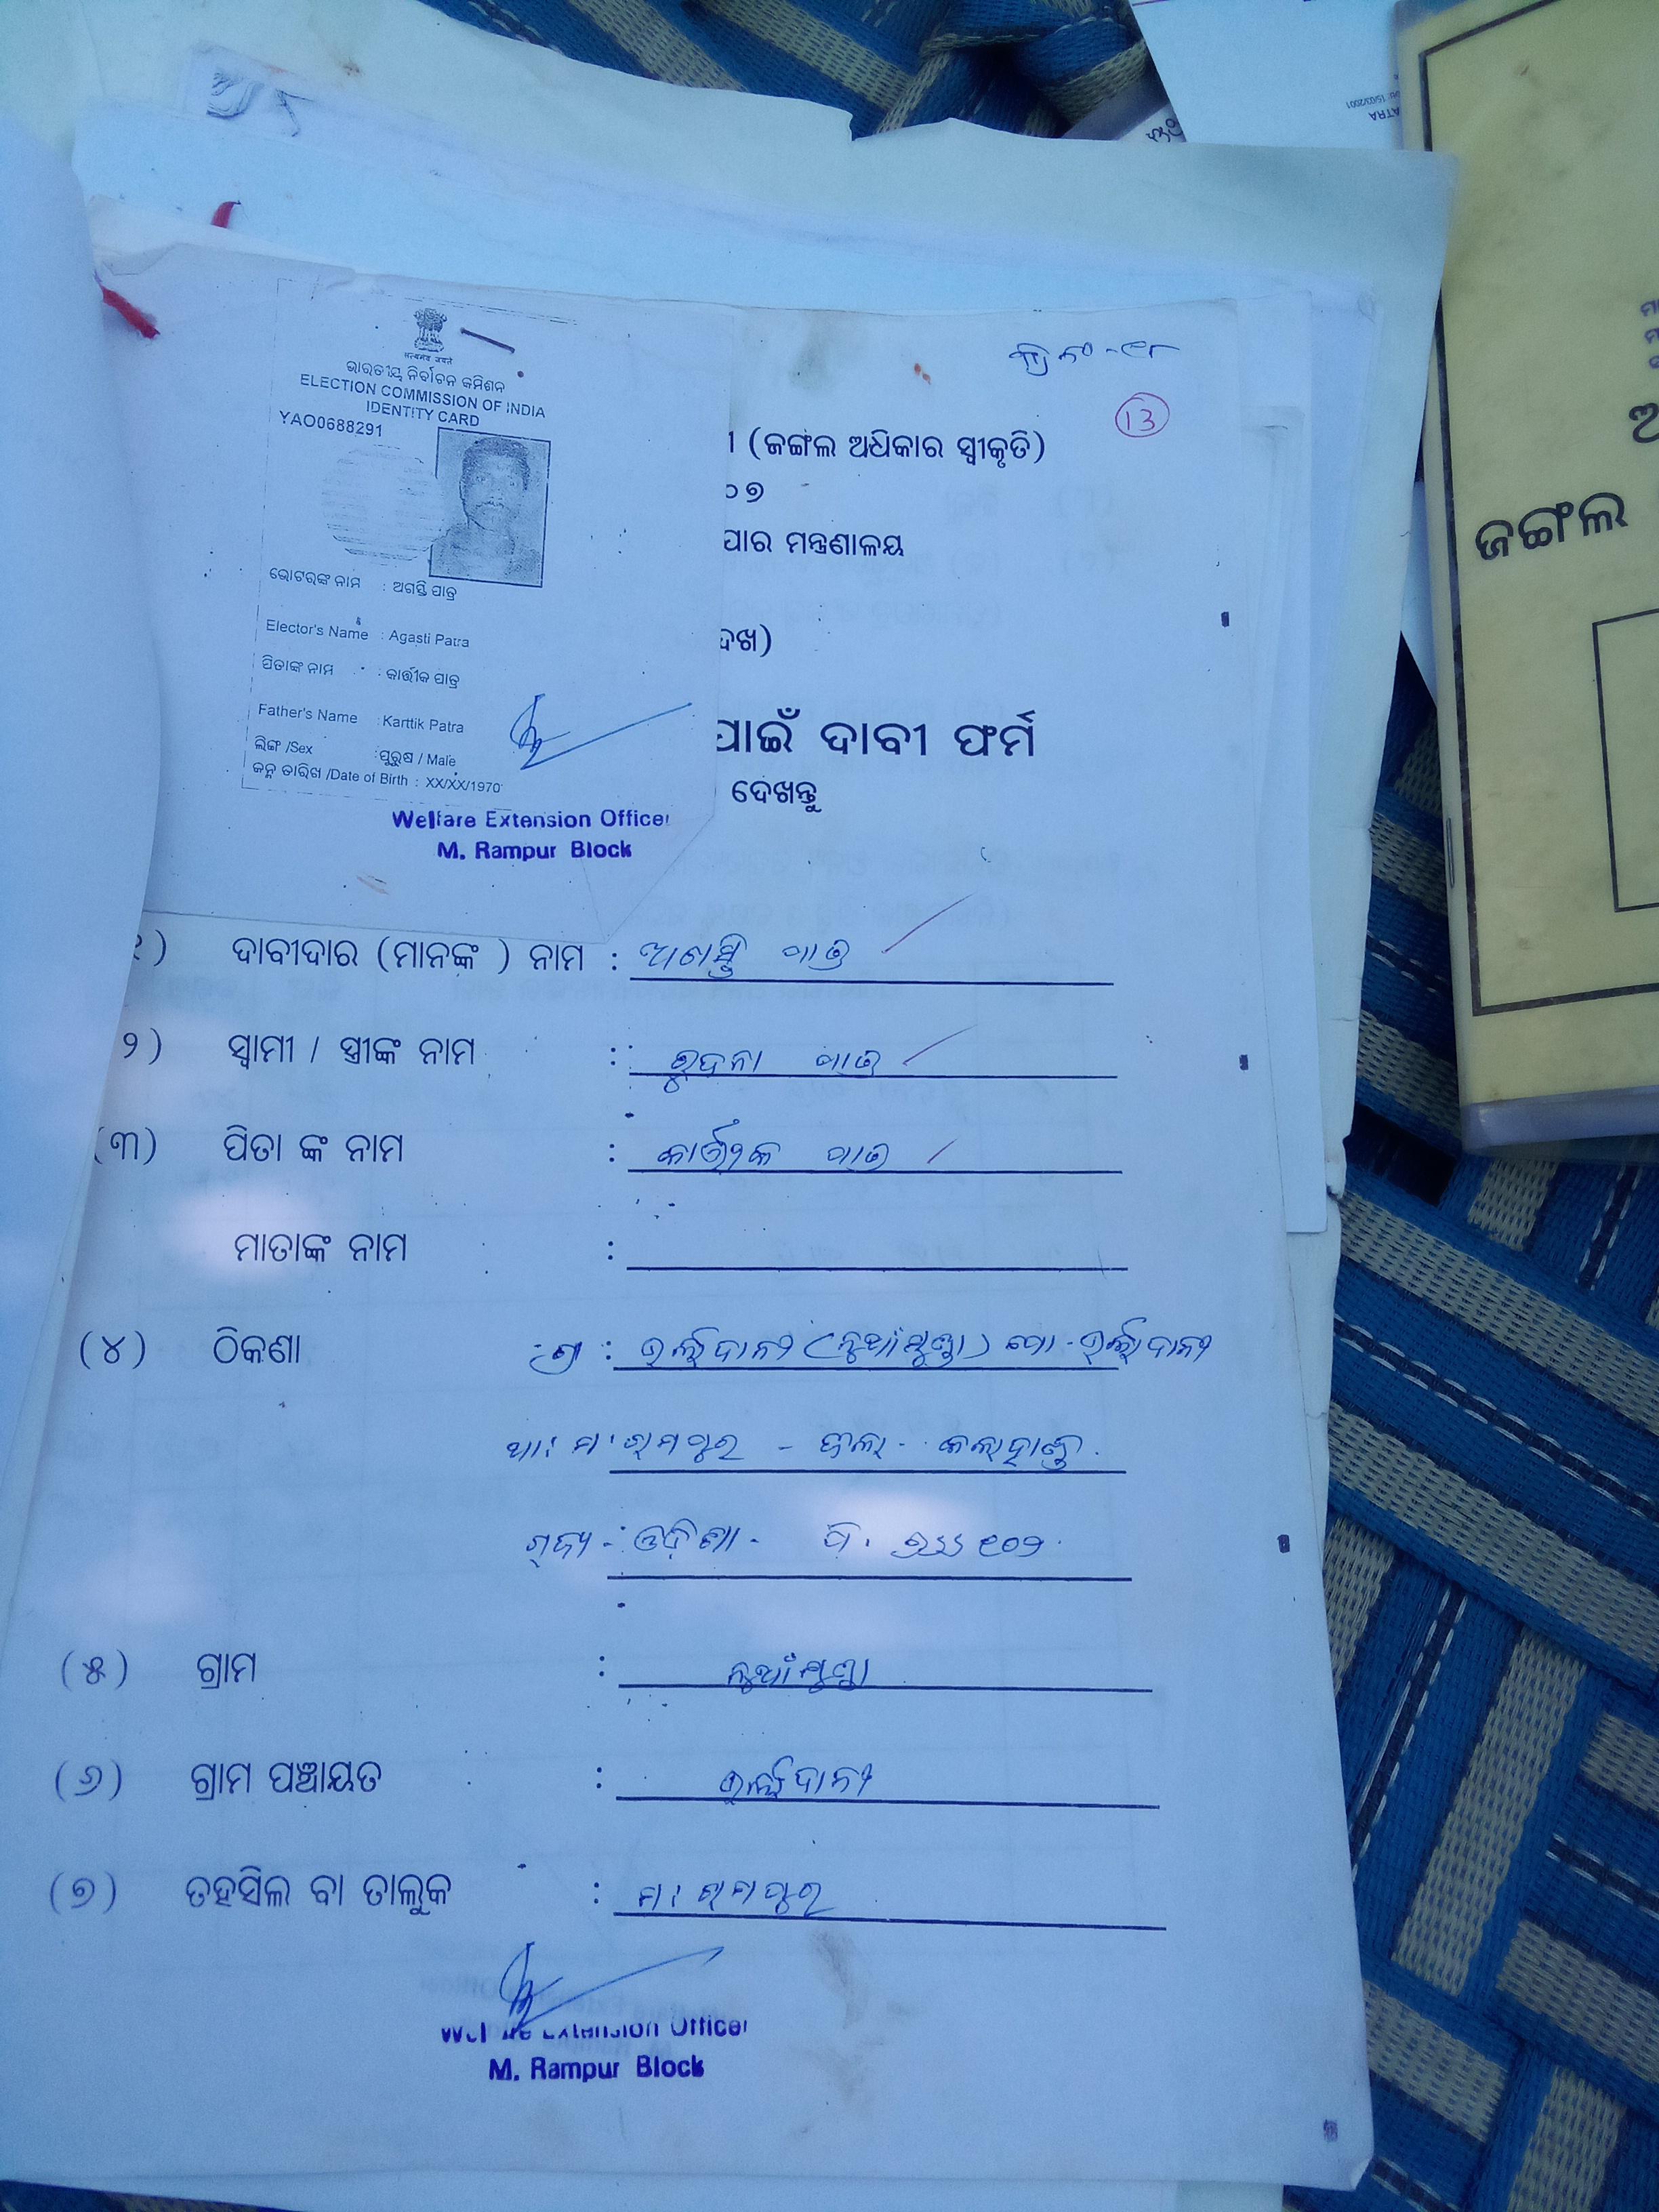 କ୍ର ନଂ - ୧୮
13
ସତ୍ୟମେଵ ଜୟତେ
ଭାରତୀୟ ନିର୍ବାଚନ କମିଶନ
ELECTION COMMISSION OF INDIA
IDENTITY CARD
YAO0688291
ଭୋଟରଙ୍କ ନାମ : ଅଗସ୍ତି ପାତ୍ର
Elector's Name : Agasti Patra
ପିତାଙ୍କ ନାମ : କାର୍ତ୍ତୀକ ପାତ୍ର
Father's Name : Karttik Patra
ଲିଙ୍ଗ /Sex : ପୁରୁଷ / Male
ଜନ୍ମ ତାରିଖ /Date of Birth : XX/XX/1970
Welfare Extension Officer
M. Rampur Block
ୀ (ଜଙ୍ଗଲ ଅଧିକାର ସ୍ୱୀକୃତି)
୦୭
ପାର ମନ୍ତ୍ରଣାଳୟ
ଦେଖ)
ପାଇଁ ଦାବୀ ଫର୍ମ
ଦେଖନ୍ତୁ
୧) ଦାବୀଦାର (ମାନଙ୍କ ) ନାମ : ଅଗସ୍ତି ପାତ୍ର
୨) ସ୍ୱାମୀ / ସ୍ତ୍ରୀଙ୍କ ନାମ : ପାତ୍ର
(୩) ପିତା ଙ୍କ ନାମ : କାର୍ତ୍ତୀକ ପାତ୍ର
ମାତାଙ୍କ ନାମ :
(୪) ଠିକଣା : (ନୁଆଁମୁଣ୍ଡା) ପୋ -
ଥା: ମ. ରାମପୁର - ଜିଲା - କଳାହାଣ୍ଡି
ରାଜ୍ୟ - ଓଡ଼ିଶା - ପି.
(୫) ଗ୍ରାମ : ନୁଆଁମୁଣ୍ଡା
(୬) ଗ୍ରାମ ପଞ୍ଚାୟତ :
(୭) ତହସିଲ ବା ତାଲୁକ : ମ: ରାମପୁର
Welfare Extension Officer
M. Rampur Block
ଜଙ୍ଗଲ